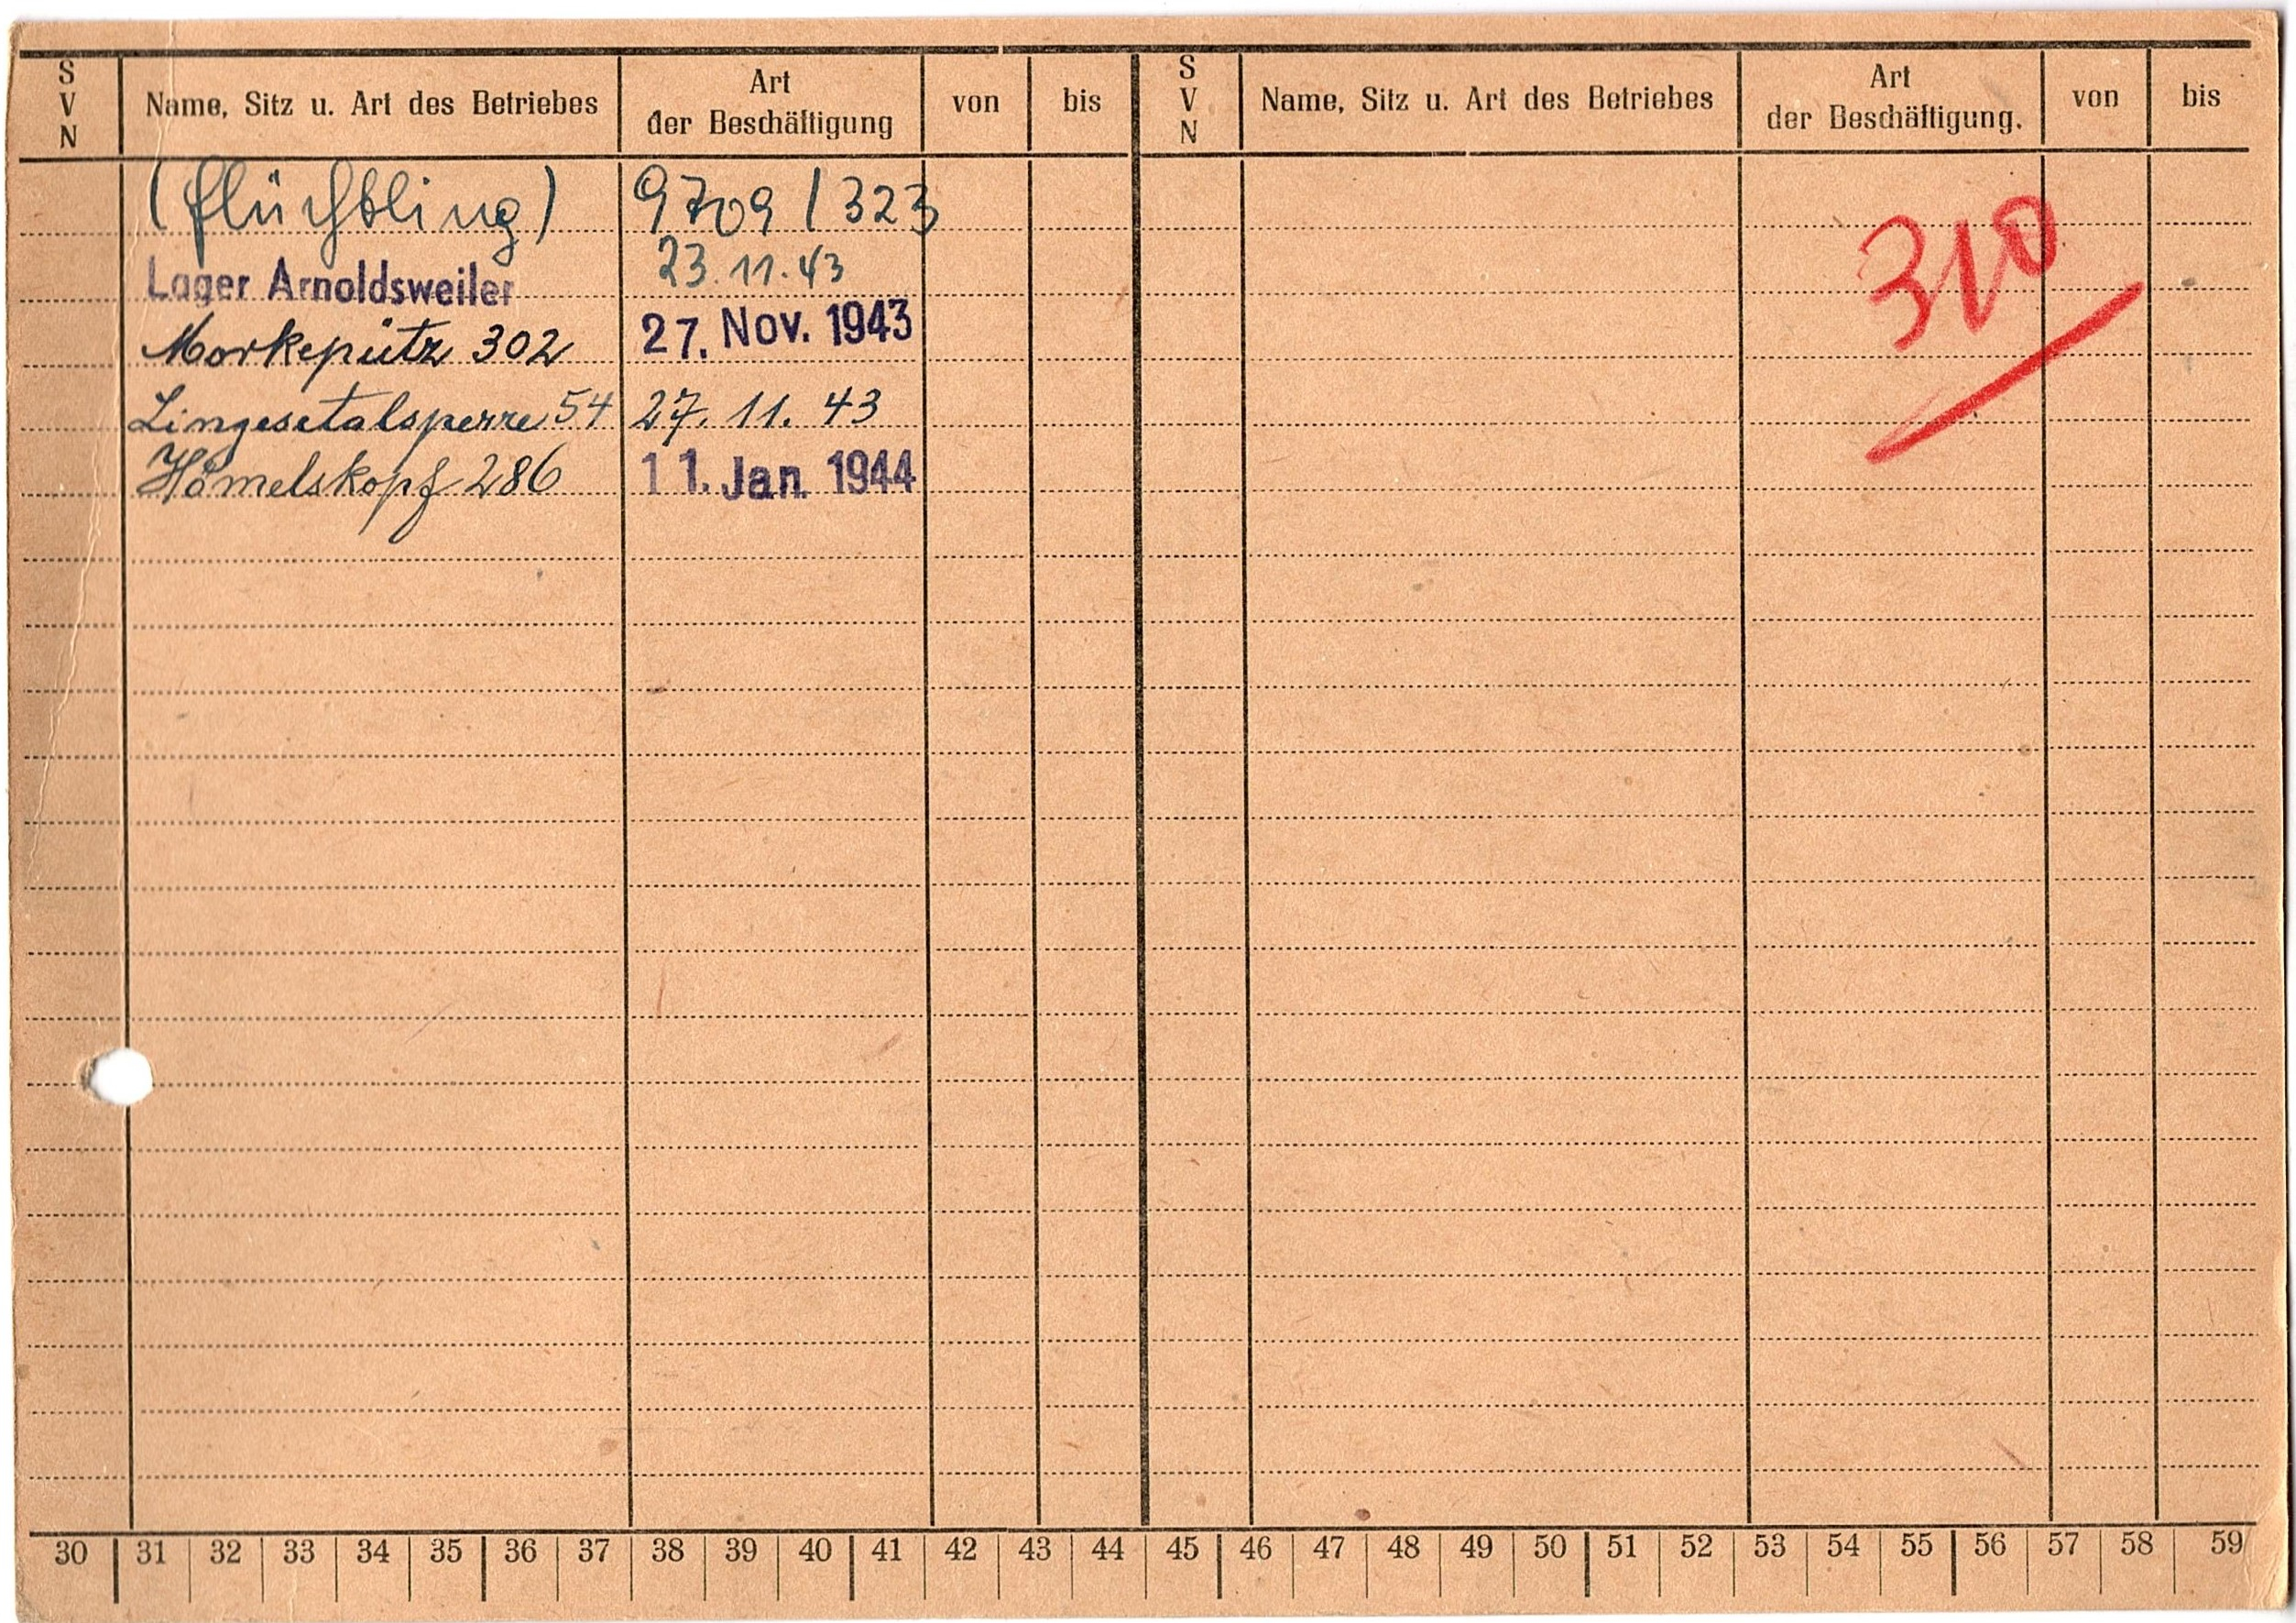 S V N Name, Sitz u. Art des Betriebes Art der Beschäftigung von bis S V N Name, Sitz u. Art des Betriebes Art der Beschäftigung. von bis
(Flüchtling) 9709/323
310
Lager Arnoldsweiler 23.11.43
Morkepütz 302 27. Nov. 1943
Lingesetalsperre 54 27. 11. 43
Hömelskopf 286 11. Jan. 1944
30 31 32 33 34 35 36 37 38 39 40 41 42 43 44 45 46 47 48 49 50 51 52 53 54 55 56 57 58 59